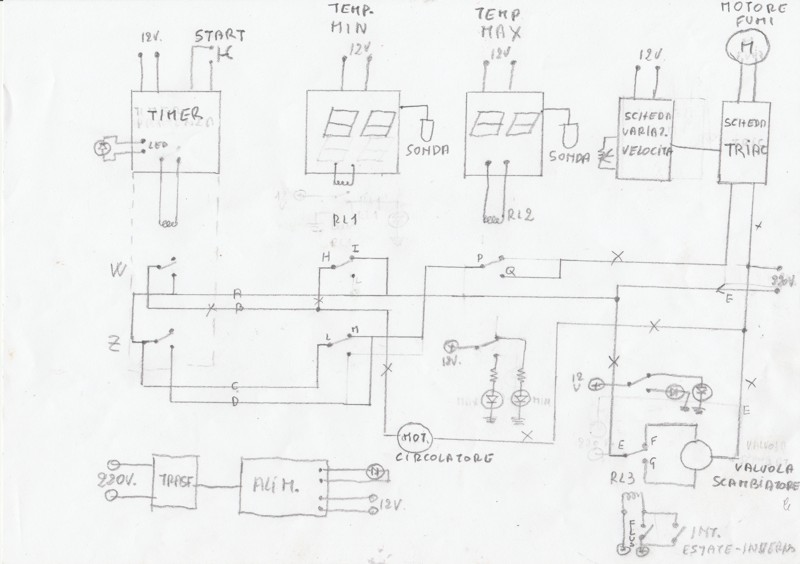 12V.
START
TIMER
LED
TEMP.
MIN
12V
88
SONDA
RL1
TEMP
MAX
12V
88
SONDA
RL2
12V
SCHEDA
VARIAZ.
VELOCITÀ
MOTORE
FUMI
M
SCHEDA
TRIAC
W
H
I
P
Q
A
B
220V.
E
Z
L
M
C
D
12V.
12
V
E
MOT.
CIRCOLATORE
E
F
G
RL3
VALVOLA
SCAMBIATORE
220V.
TRASF.
ALIM.
12V.
FLUS
INT.
ESTATE-INVERNO